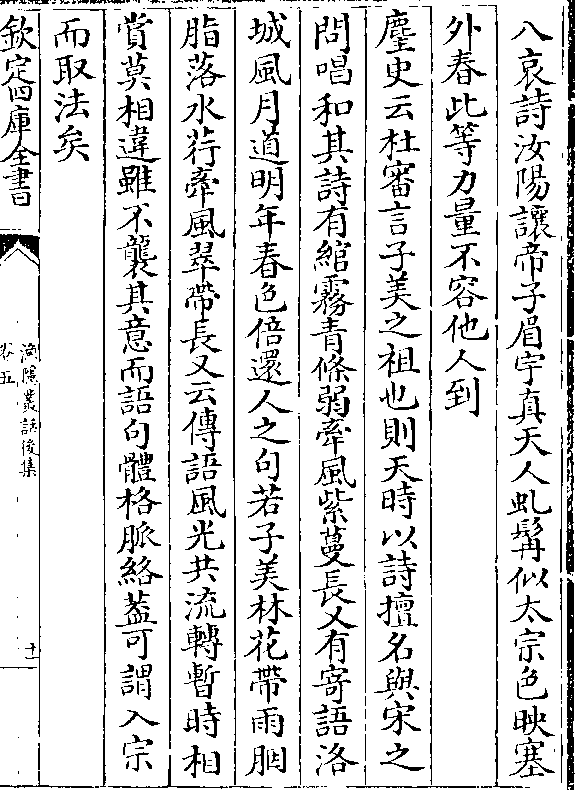 八哀詩汝陽讓帝子眉宇真天人虬髯似太宗色映塞
外春此等力量不容他人到
麈史云杜審言子美之祖也則天時以詩擅名與宋之
問唱和其詩有綰霧青條弱牽風紫蔓長又有寄語洛
城風月道明年春色倍還人之句若子美林花帶雨胭
脂落水荇牽風翠帶長又云傳語風光共流轉暫時相
賞莫相違雖不襲其意而語句體格脈絡葢可謂入宗
而取法矣
欽定四庫全書
漁隱叢話後集
卷五
十一